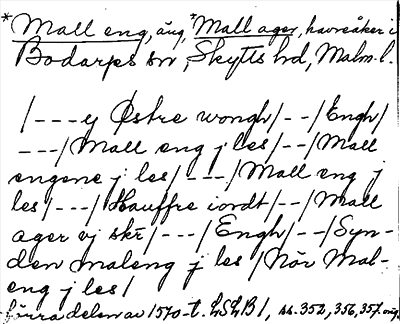 *Mall eng, äng, *Mall ager, havreåker i
Bodarps sn, Skytts hd, Malm. l.
/---y Østre wongh/--/Engh/
---/Mall eng j les/--/Mall
engene j les/---/Mall eng j
les/---/Hauffre iordt/--/Mall
ager vj skr/---/Engh/--/Syn-
den maleng j les/Nör Mal-
eng j les/
förra delen av 1570-t. LSLB1, ss. 352, 356, 357.